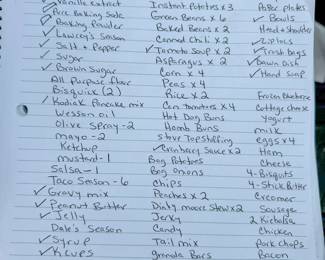 ✓ Vanilla extract
✓ Baking Sale
✓ Baking Powder
✓ Lawrey's Season
✓ Salt + Pepper
✓ Sugar
✓ Brown Sugar
All Purpose flour
Bisquick (2)
✓ Kodiak Pancake mix
Wesson oil
Olive Spray - 2
mayo - 2
Ketchup
mustard - 1
Salsa - 1
Taco Season - 6
✓ Gravy mix
✓ Peanut Butter
✓ Jelly
Dale's Season
✓ Syrup
✓ K cups
Instant Potatoes x 3
Green Beans x 6
Baked Beans x 2
Canned Chili x 2
✓ Tomato Soup x 2
Asparagus x 2
Corn x 4
Peas x 4
Rice x 2
Can tomatoes x 4
Hot Dog Buns
Hamb Buns
Stove Top Stuffing
✓ Cranbarry Sauce x 2
Bag Potatoes
Bag onions
Chips
Peaches x 2
Dinty moore Stew x 2
Jerky
Candy
Tail mix
granola Bars
Paper plates
✓ Bowls
Head + Shoulder
✓ Ziplocs
✓ Trash bags
✓ Dawn Dish
✓ Hand Soap
Frozen
Cottage cheese
Yogurt
milk
eggs x 4
Ham
Cheese
4 - Biscuits
4 - Stick Butter
Creamer
Sausage
2 Kielbasa
Chicken
Pork chops
Bacon